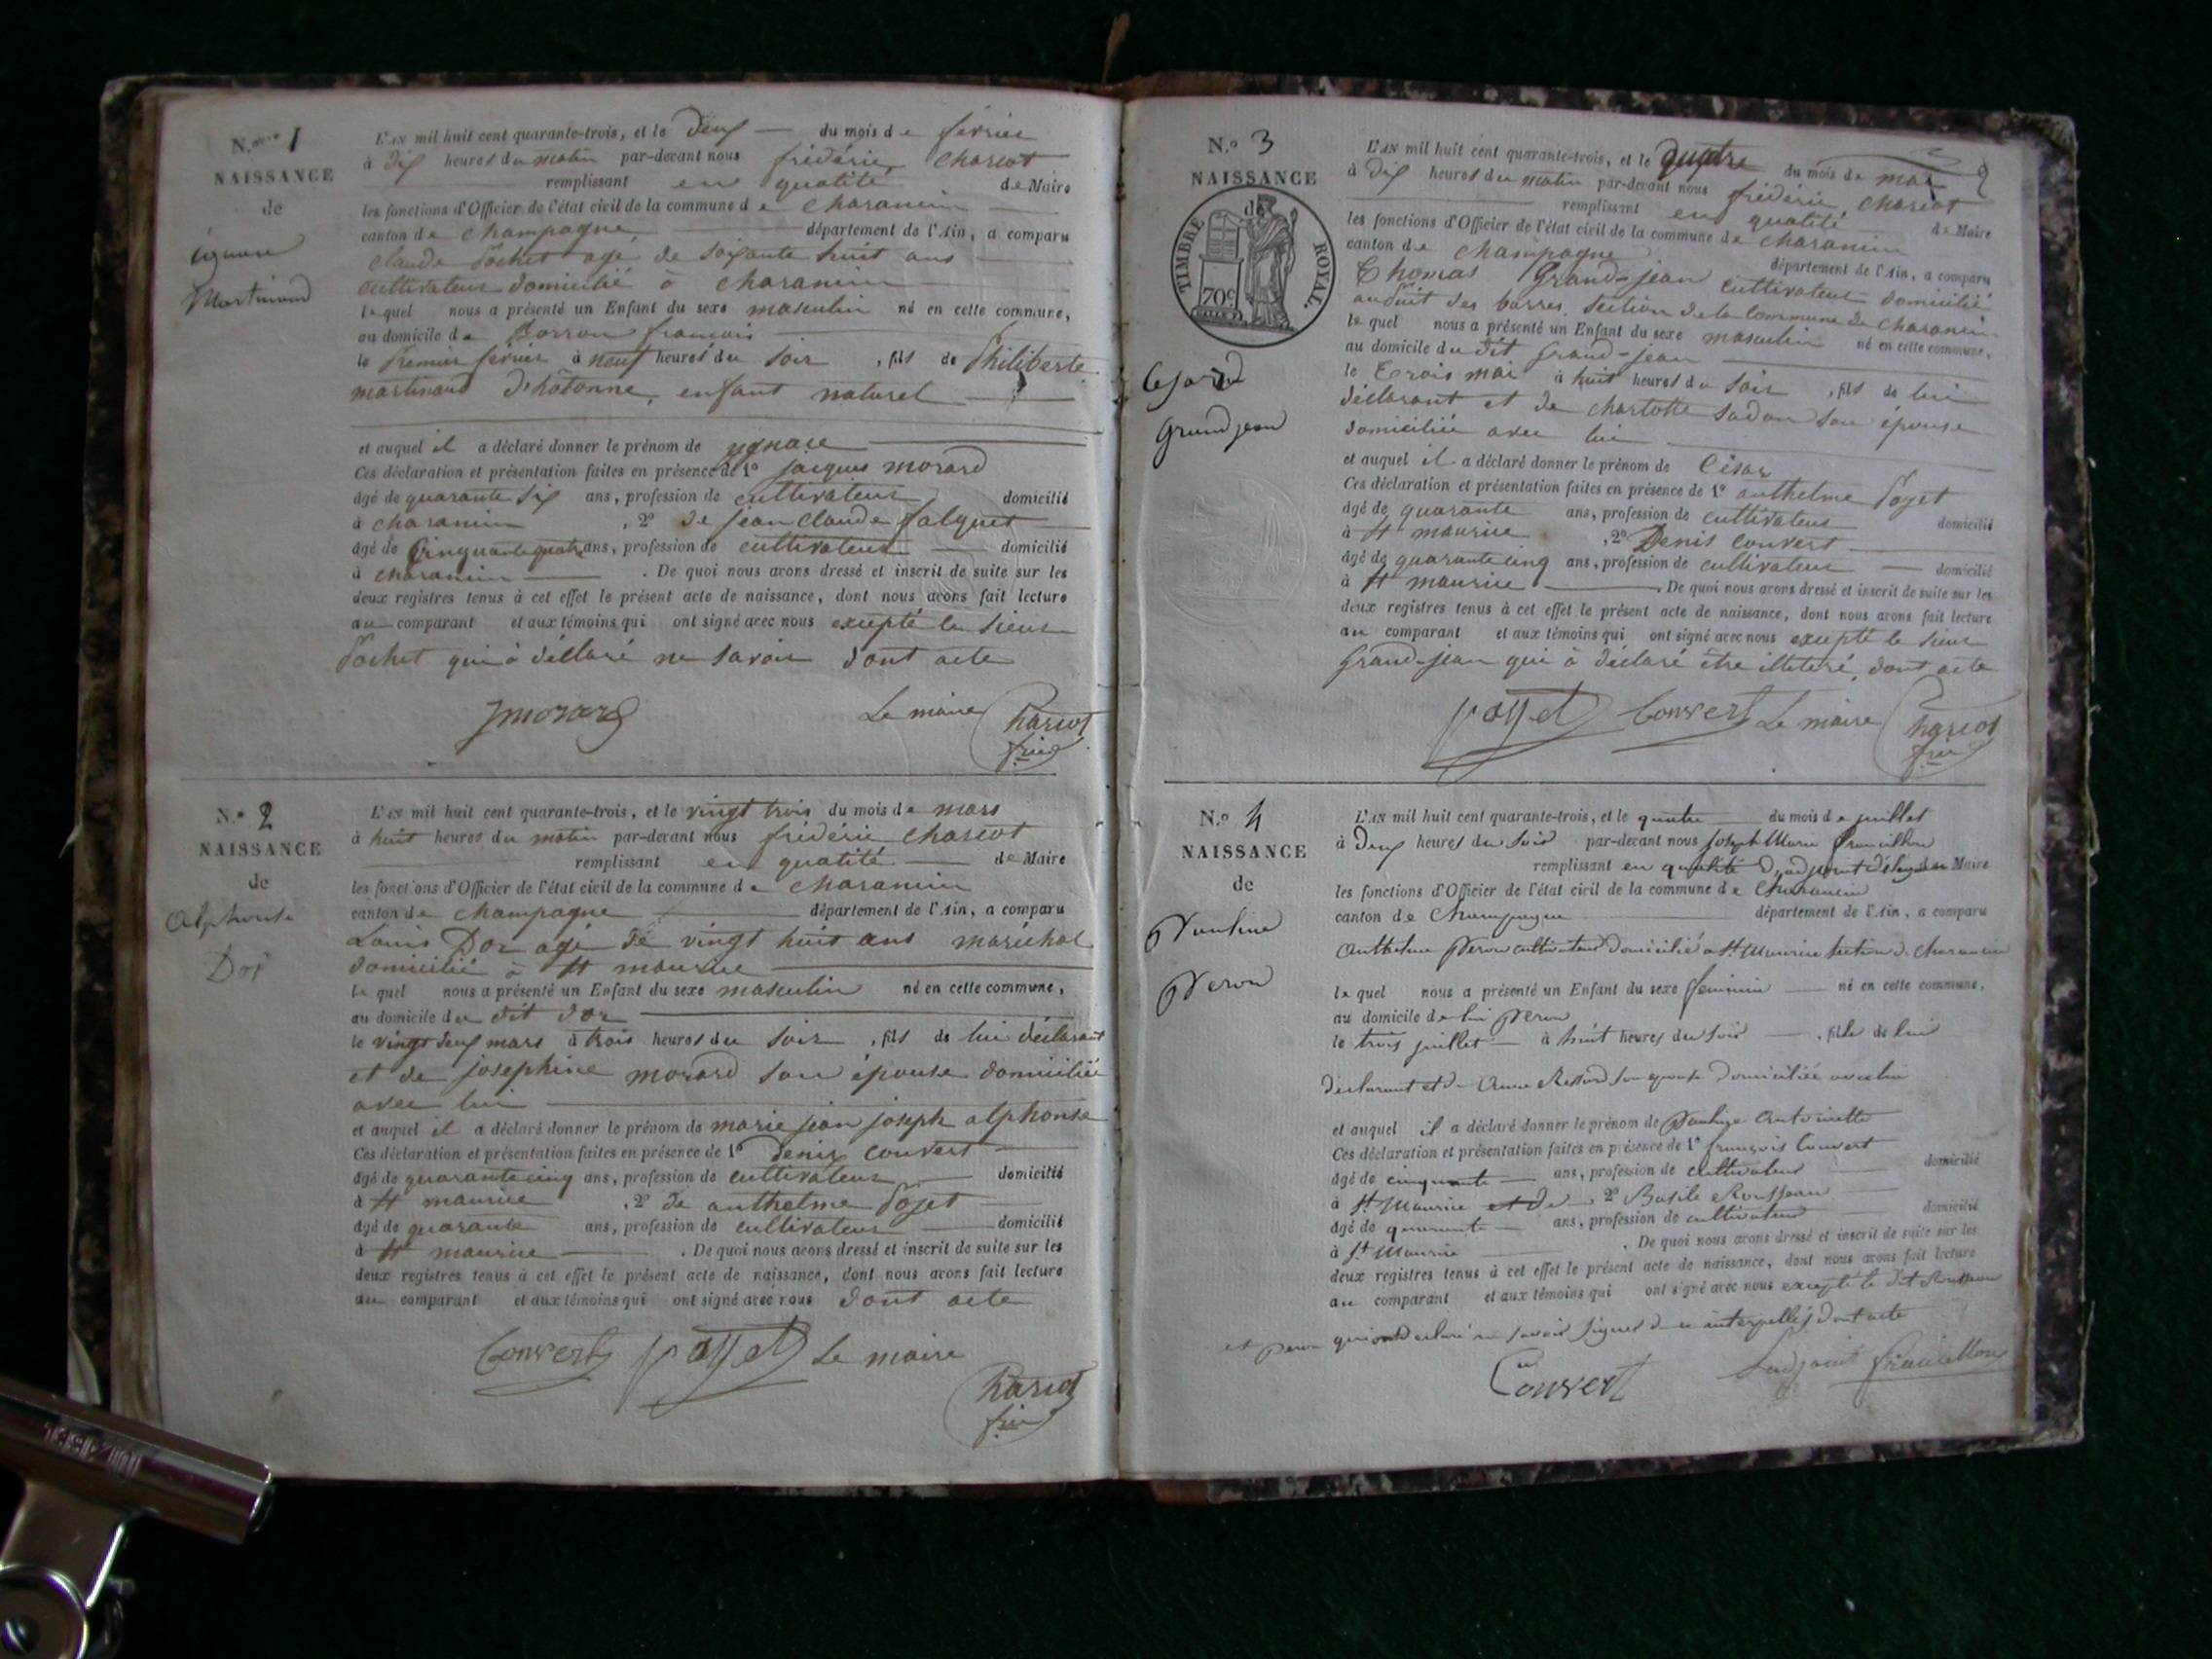 N.° 1
NAISSANCE
de
ignace
Martinand
L'AN mil huit cent quarante-trois, et le deux du mois de février
à dix heures du matin par-devant nous frédéric Charcot
remplissant en qualité de Maire
les fonctions d'Officier de l'état civil de la commune de charancin
canton de champagne département de l'Ain, a comparu
claude Pochet agé de soixante huit ans
cultivateur domicilié à charancin
lequel nous a présenté un Enfant du sexe masculin né en cette commune,
au domicile de françois
le Premier fevrier à neuf heures du soir, fils de Philiberte
martinand d'hotonne, enfant naturel
et auquel il a déclaré donner le prénom de ygnace
Ces déclaration et présentation faites en présence de 1° jacques morard
âgé de quarante six ans, profession de cultivateur domicilié
à charancin, 2° de jean claude falquet
âgé de Cinquante quatre ans, profession de cultivateur domicilié
à charancin. De quoi nous avons dressé et inscrit de suite sur les
deux registres tenus à cet effet le présent acte de naissance, dont nous avons fait lecture
au comparant et aux témoins qui ont signé avec nous excepté le sieur
Pochet qui à déclaré ne savoir dont acte
jmorard Le maire Charcot
fric
N.° 2
NAISSANCE
de
Alphonse
Dor
L'AN mil huit cent quarante-trois, et le vingt trois du mois de mars
à huit heures du matin par-devant nous frédéric charcot
remplissant en qualité de Maire
les fonctions d'Officier de l'état civil de la commune de charancin
canton de champagne département de l'Ain, a comparu
Louis Dor agé de vingt huit ans maréchal
domicilié à st maurice
lequel nous a présenté un Enfant du sexe masculin né en cette commune,
au domicile du dit dor
le vingt deux mars à trois heures du soir, fils de lui déclarant
et de josephine morard son épouse domiciliée
avec lui
et auquel il a déclaré donner le prénom de marie jean joseph alphonse
Ces déclaration et présentation faites en présence de 1° denis convert
âgé de quarante cinq ans, profession de cultivateur domicilié
à st maurice, 2° de anthelme Pojet
âgé de quarante ans, profession de cultivateur domicilié
à st maurice. De quoi nous avons dressé et inscrit de suite sur les
deux registres tenus à cet effet le présent acte de naissance, dont nous avons fait lecture
au comparant et aux témoins qui ont signé avec nous dont acte
Convert Le maire
Charcot
fric
N.° 3
NAISSANCE
de
TIMBRE ROYAL.
70c
César
Grandjean
L'AN mil huit cent quarante-trois, et le quatre du mois de mai
à dix heures du matin par-devant nous frédéric charcot
remplissant en qualité de Maire
les fonctions d'Officier de l'état civil de la commune de charancin
canton de champagne département de l'Ain, a comparu
Thomas Grand-jean cultivateur domicilié
audit des barres section de la commune de charancin
lequel nous a présenté un Enfant du sexe masculin né en cette commune,
au domicile du dit Grand-jean
le trois mai à huit heures du soir, fils de lui
déclarant et de charlotte son épouse
domiciliée avec lui
et auquel il a déclaré donner le prénom de César
Ces déclaration et présentation faites en présence de 1° anthelme Pojet
âgé de quarante ans, profession de cultivateur domicilié
à st maurice, 2° Denis Convert
âgé de quarante cinq ans, profession de cultivateur domicilié
à st maurice. De quoi nous avons dressé et inscrit de suite sur les
deux registres tenus à cet effet le présent acte de naissance, dont nous avons fait lecture
au comparant et aux témoins qui ont signé avec nous excepté le sieur
Grand-jean qui à déclaré être illitéré, dont acte
Convert Le maire Charcot
fric
N.° 4
NAISSANCE
de
Pauline
Peron
L'AN mil huit cent quarante-trois, et le quatre du mois de juillet
à Deux heures du soir par-devant nous Joseph Marie Francillon
remplissant en qualité d'adjoint délégué du Maire
les fonctions d'Officier de l'état civil de la commune de Charancin
canton de Champagne département de l'Ain, a comparu
Anthelme Peron cultivateur domicilié a St Maurice section de charancin
lequel nous a présenté un Enfant du sexe feminin né en cette commune,
au domicile de lui Peron
le trois juillet à huit heures du soir, fille de lui
declarant et de Anne son epouse Domiciliée avec lui
et auquel il a déclaré donner le prénom de Pauline Antoinette
Ces déclaration et présentation faites en présence de 1° françois Convert
âgé de cinquante ans, profession de cultivateur domicilié
à St Maurice et de 2° Basile Rousseau
âgé de quarante ans, profession de cultivateur domicilié
à St Maurice. De quoi nous avons dressé et inscrit de suite sur les
deux registres tenus à cet effet le présent acte de naissance, dont nous avons fait lecture
au comparant et aux témoins qui ont signé avec nous excepté le dit Rousseau
et peron qui ont declaré ne savoir signer de ce interpellés dont acte
Convert L'adjoint francillon